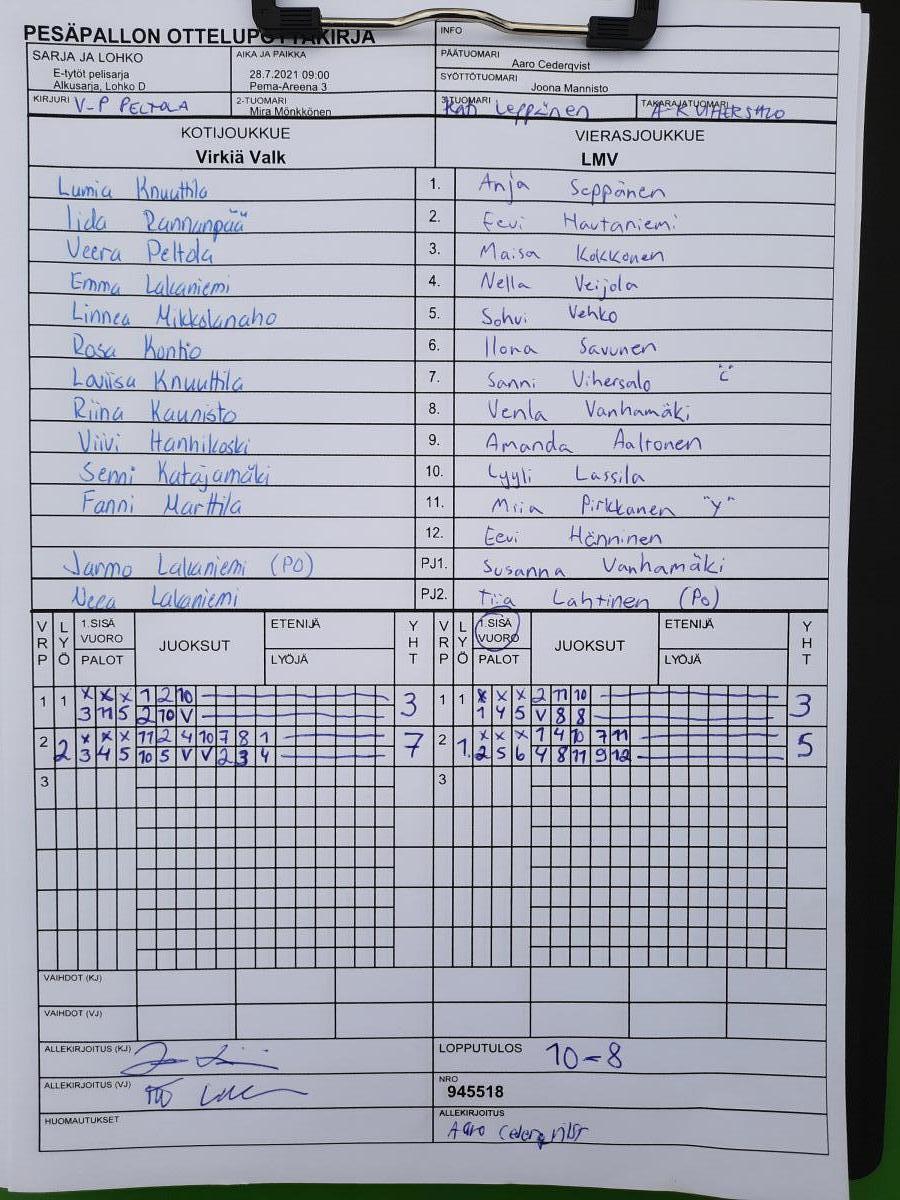 PESÄPALLON OTTELUPÖYTÄKIRJA
INFO
SARJA JA LOHKO
E-tytöt pelisarja
Alkusarja, Lohko D
AIKA JA PAIKKA
28.7.2021 09:00
Pema-Areena 3
PÄÄTUOMARI
Aaro Cederqvist
SYÖTTÖTUOMARI
Joona Mannisto
KIRJURI V-P PELTOLA
2-TUOMARI
Mira Mönkkönen
3-TUOMARI
Leppänen
TAKARAJATUOMARI
A-K VIHERSALO
KOTIJOUKKUE
Virkiä Valk
VIERASJOUKKUE
LMV
Lumia Knuuttila 1. Anja Seppänen
Iida Rannanpää 2. Eevi Hautaniemi
Veera Peltola 3. Maisa Kokkonen
Emma Lakaniemi 4. Nella Veijola
Linnea Mikkolanaho 5. Sohvi Vehko
Rosa Kontio 6. Ilona Savunen
Loviisa Knuuttila 7. Sanni Vihersalo "C"
Riina Kaunisto 8. Venla Vanhamäki
Viivi Hanhikoski 9. Amanda Aaltonen
Senni Katajamäki 10. Lyyli Lassila
Fanni Marttila 11. Miia Pirkkanen "Y"
12. Eevi Hänninen
Jarmo Lakaniemi (PO) PJ1. Susanna Vanhamäki
Neea Lakaniemi PJ2. Tiia Lahtinen (PO)
VRP LYÖ 1.SISÄ VUORO PALOT JUOKSUT ETENIJÄ LYÖJÄ YHT VRP LYÖ 1.SISÄ VUORO PALOT JUOKSUT ETENIJÄ LYÖJÄ YHT
1 1 x x x 1 2 10 3 1 1 x x x 2 11 10 3
3 11 5 2 10 V 1 4 5 V 8 8
2 2 x x x 11 2 4 10 7 8 1 7 2 1. x x x 1 4 10 7 11 5
3 4 5 10 5 V V 2 3 4 2 5 6 4 8 11 9 12
3 3
VAIHDOT (KJ)
VAIHDOT (VJ)
ALLEKIRJOITUS (KJ)
LOPPUTULOS 10-8
ALLEKIRJOITUS (VJ)
NRO
945518
HUOMAUTUKSET
ALLEKIRJOITUS
Aaro Cederqvist